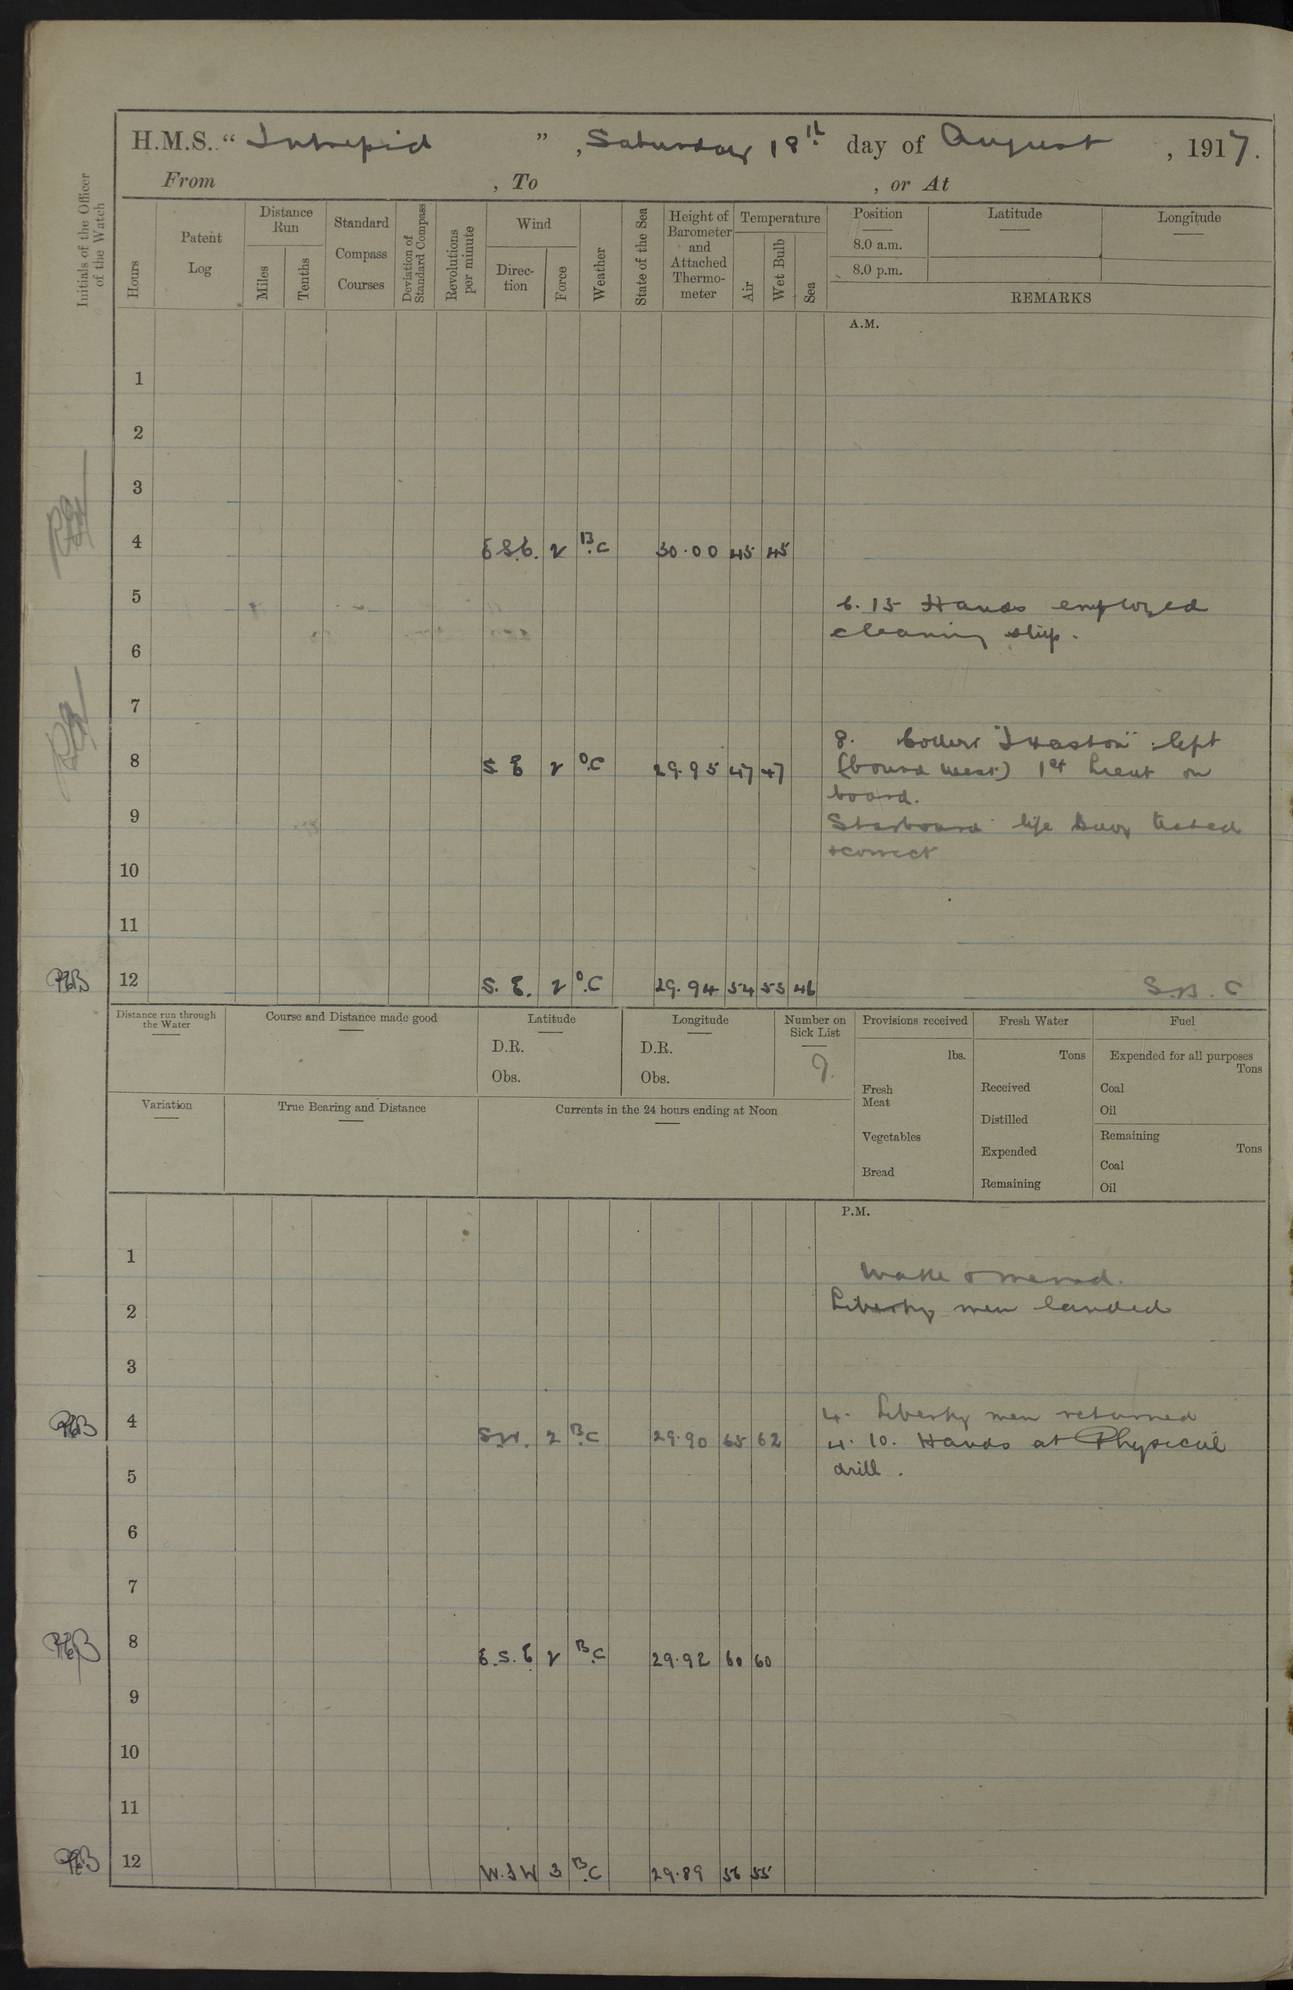 H.M.S. "Intrepid", Saturday 18th day of August, 1917.
From , To , or At
Initials of the Officer of the Watch
Hours
Patent Log
Distance Run
Miles
Tenths
Standard Compass Courses
Deviation of Standard Compass
Revolutions per minute
Wind
Direc-tion
Force
Weather
State of the Sea
Height of Barometer and Attached Thermo-meter
Temperature
Air
Wet Bulb
Sea
Position Latitude Longitude
8.0 a.m.
8.0 p.m.
REMARKS
A.M.
1
2
3
4 E.S.E. 2 B.C 30.00 45 45
5 6.15 Hands employed
cleaning ship.
6
7
8. left
8 S E 2 O.C 29.95 47 47 (bound west) 1st Lieut on
board.
9 Starboard life buoy tested
& correct
10
11
12 S. E. 2 O.C 29.94 54 53 46
Distance run through the Water
Course and Distance made good
Latitude
D.R.
Obs.
Longitude
D.R.
Obs.
Number on Sick List
9.
Provisions received
lbs.
Fresh Meat
Vegetables
Bread
Fresh Water
Tons
Received
Distilled
Expended
Remaining
Fuel
Expended for all purposes
Tons
Coal
Oil
Remaining
Tons
Coal
Oil
Variation
True Bearing and Distance
Currents in the 24 hours ending at Noon
P.M.
1 Make & mend.
2 Liberty men landed
3
4. Liberty men returned
4 S.W. 2 B.C 29.90 65 62 4.10. Hands at Physical
drill.
5
6
7
8 E.S.E 2 B.C 29.92 60 60
9
10
11
12 W.S.W 3 B.C 29.89 56 55